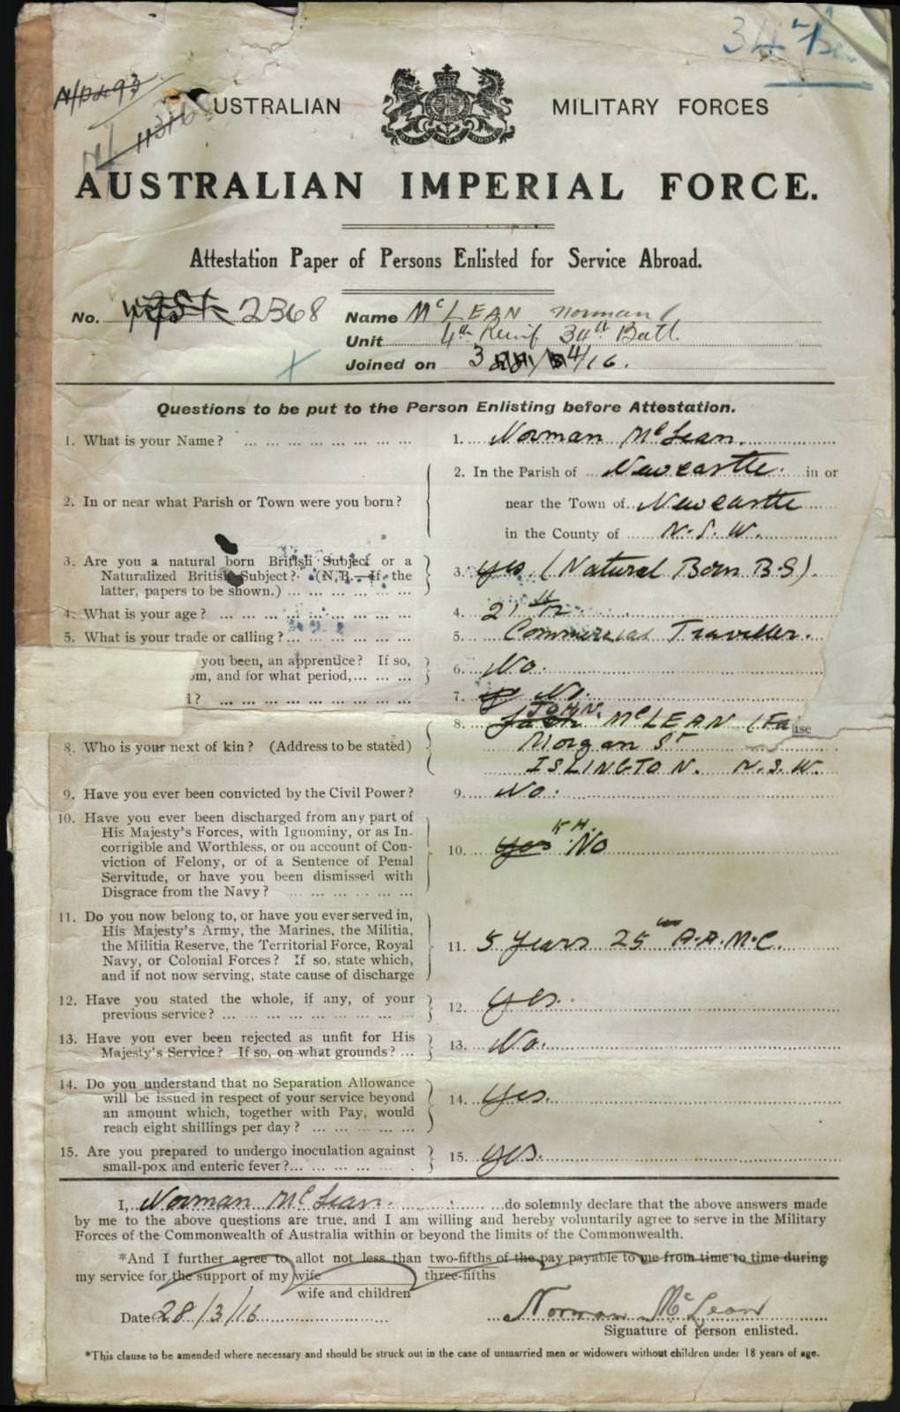 34th Bn
AUSTRALIAN MILITARY FORCES
AUSTRALIAN IMPERIAL FORCE.
Attestation Paper of Persons Enlisted for Service Abroad.
No. 2368 Name McLEAN Norman
Unit 4th Reinf 34th Batt
Joined on 3 /4/16.
Questions to be put to the Person Enlisting before Attestation.
1. What is your Name? ... 1. Norman McLean.
2. In or near what Parish or Town were you born? 2. In the Parish of Newcastle in or
near the Town of Newcastle
in the County of N.S.W.
3. Are you a natural born British Subject or a
Naturalized British Subject? (N.B.—If the
latter, papers to be shown.) ... 3. yes. (Natural Born B.S).
4. What is your age? ... 4. 21
5. What is your trade or calling? ... 5. Commercial Traveller.
you been, an apprentice? If so,
om, and for what period, ... 6. No.
l? ... 7. No.
8. Who is your next of kin? (Address to be stated) 8. JOHN McLEAN (Fa
Morgan St
ISLINGTON. N.S.W.
9. Have you ever been convicted by the Civil Power? 9. No.
10. Have you ever been discharged from any part of
His Majesty's Forces, with Ignominy, or as In-
corrigible and Worthless, or on account of Con-
viction of Felony, or of a Sentence of Penal
Servitude, or have you been dismissed with
Disgrace from the Navy? ... 10. yes No
11. Do you now belong to, or have you ever served in,
His Majesty's Army, the Marines, the Militia,
the Militia Reserve, the Territorial Force, Royal
Navy, or Colonial Forces? If so, state which,
and if not now serving, state cause of discharge 11. 5 Years 25th A.A.M.C.
12. Have you stated the whole, if any, of your
previous service? ... 12. yes.
13. Have you ever been rejected as unfit for His
Majesty's Service? If so, on what grounds? ... 13. No.
14. Do you understand that no Separation Allowance
will be issued in respect of your service beyond
an amount which, together with Pay, would
reach eight shillings per day? ... 14. yes.
15. Are you prepared to undergo inoculation against
small-pox and enteric fever? ... 15. yes.
I, Norman McLean. do solemnly declare that the above answers made
by me to the above questions are true, and I am willing and hereby voluntarily agree to serve in the Military
Forces of the Commonwealth of Australia within or beyond the limits of the Commonwealth.
*And I further agree to allot not less than two-fifths of the pay payable to me from time to time during
three-fifths
my service for the support of my wife
wife and children
Date 28/3/16 Norman McLean
Signature of person enlisted.
*This clause to be amended where necessary and should be struck out in the case of unmarried men or widowers without children under 18 years of age.